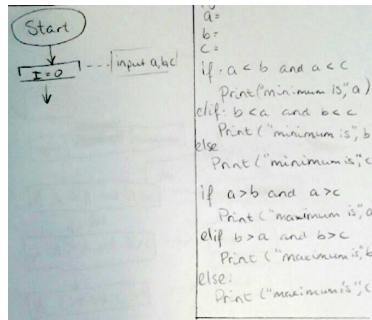 Start
I = 0
input a,b,c
a=
b=
c=
if . a < b and a < c
Print("minimum is", a)
elif: b < a and b < c
Print ("minimum is", b
else
Print ("minimum is", c
if a > b and a > c
Print ("maximum is", a
elif b > a and b > c
Print ("maximum is", b
else:
Print ("maximum is", c